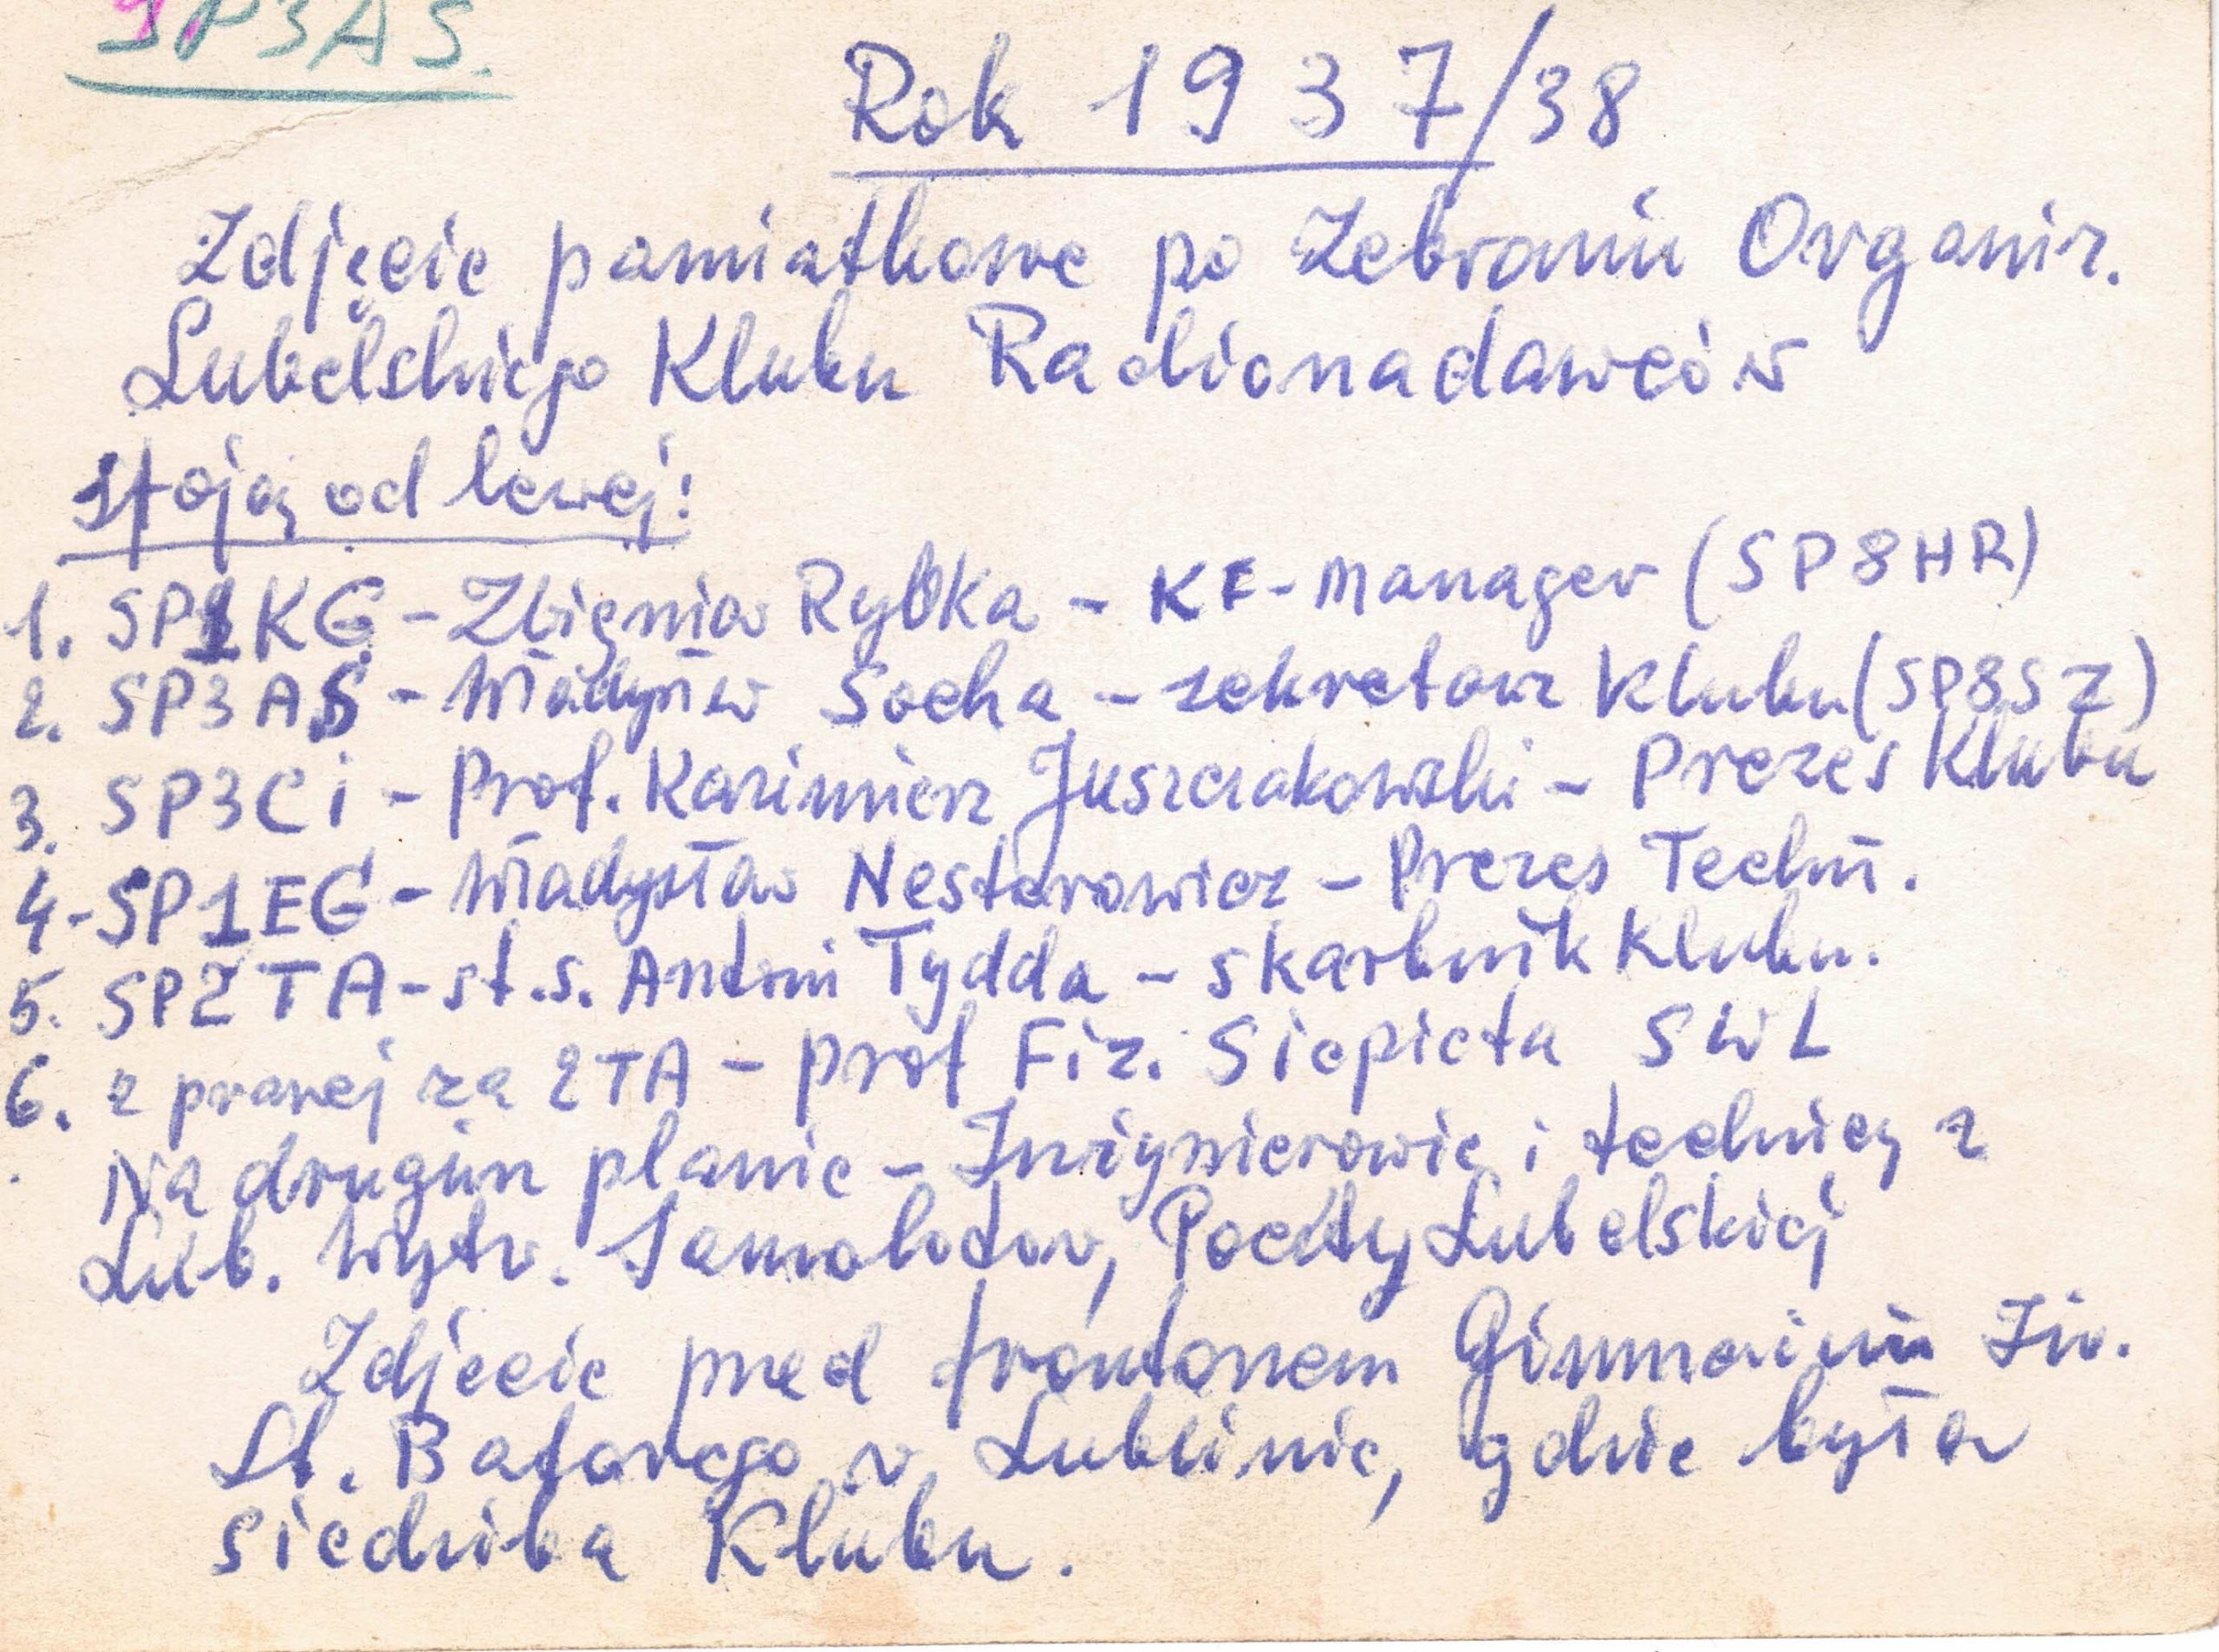 SP3AS.
Rok 1937/38
Zdjęcie pamiatkowe po Zebraniu Organiz.
Lubelskiego Klubu Radionadawców
Stoją od lewej:
1. SP1KG - Zbigniew Rybka - KF-Manager (SP8HR)
2. SP3AS - Władysław Socha - sekretarz Klubu (SP8SZ)
3. SP3Ci - Prof. Kazimierz Juszczakowski - Prezes Klubu
4 - SP1EG - Władysław Nesterowicz - Prezes Techn.
5. SP2TA - st.s. Antoni Tydda - skarbnik Klubu.
6. z prawej za 2TA - prof Fiz. Siepieta SWL
Na drugim planie - Inżynierowie i technicy z
Lub. Wytw. Samolotów, Poczty Lubelskiej
Zdjęcie przed frontonem Gimnazium Im.
St. Batorego w Lublinie, gdzie była
siedziba Klubu.